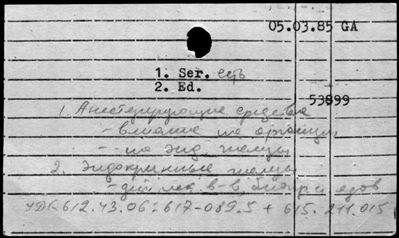 05.03.85 GA
1. Ser. есть
2. Ed.
53899
1. Анестезирующие средства
- влияние на организм
- на энд. железы
2. Эндокринные железы
- действ. лек. в-в, биопр. и ядов
УДК 612.43.06:617-089.5 + 615.211.015